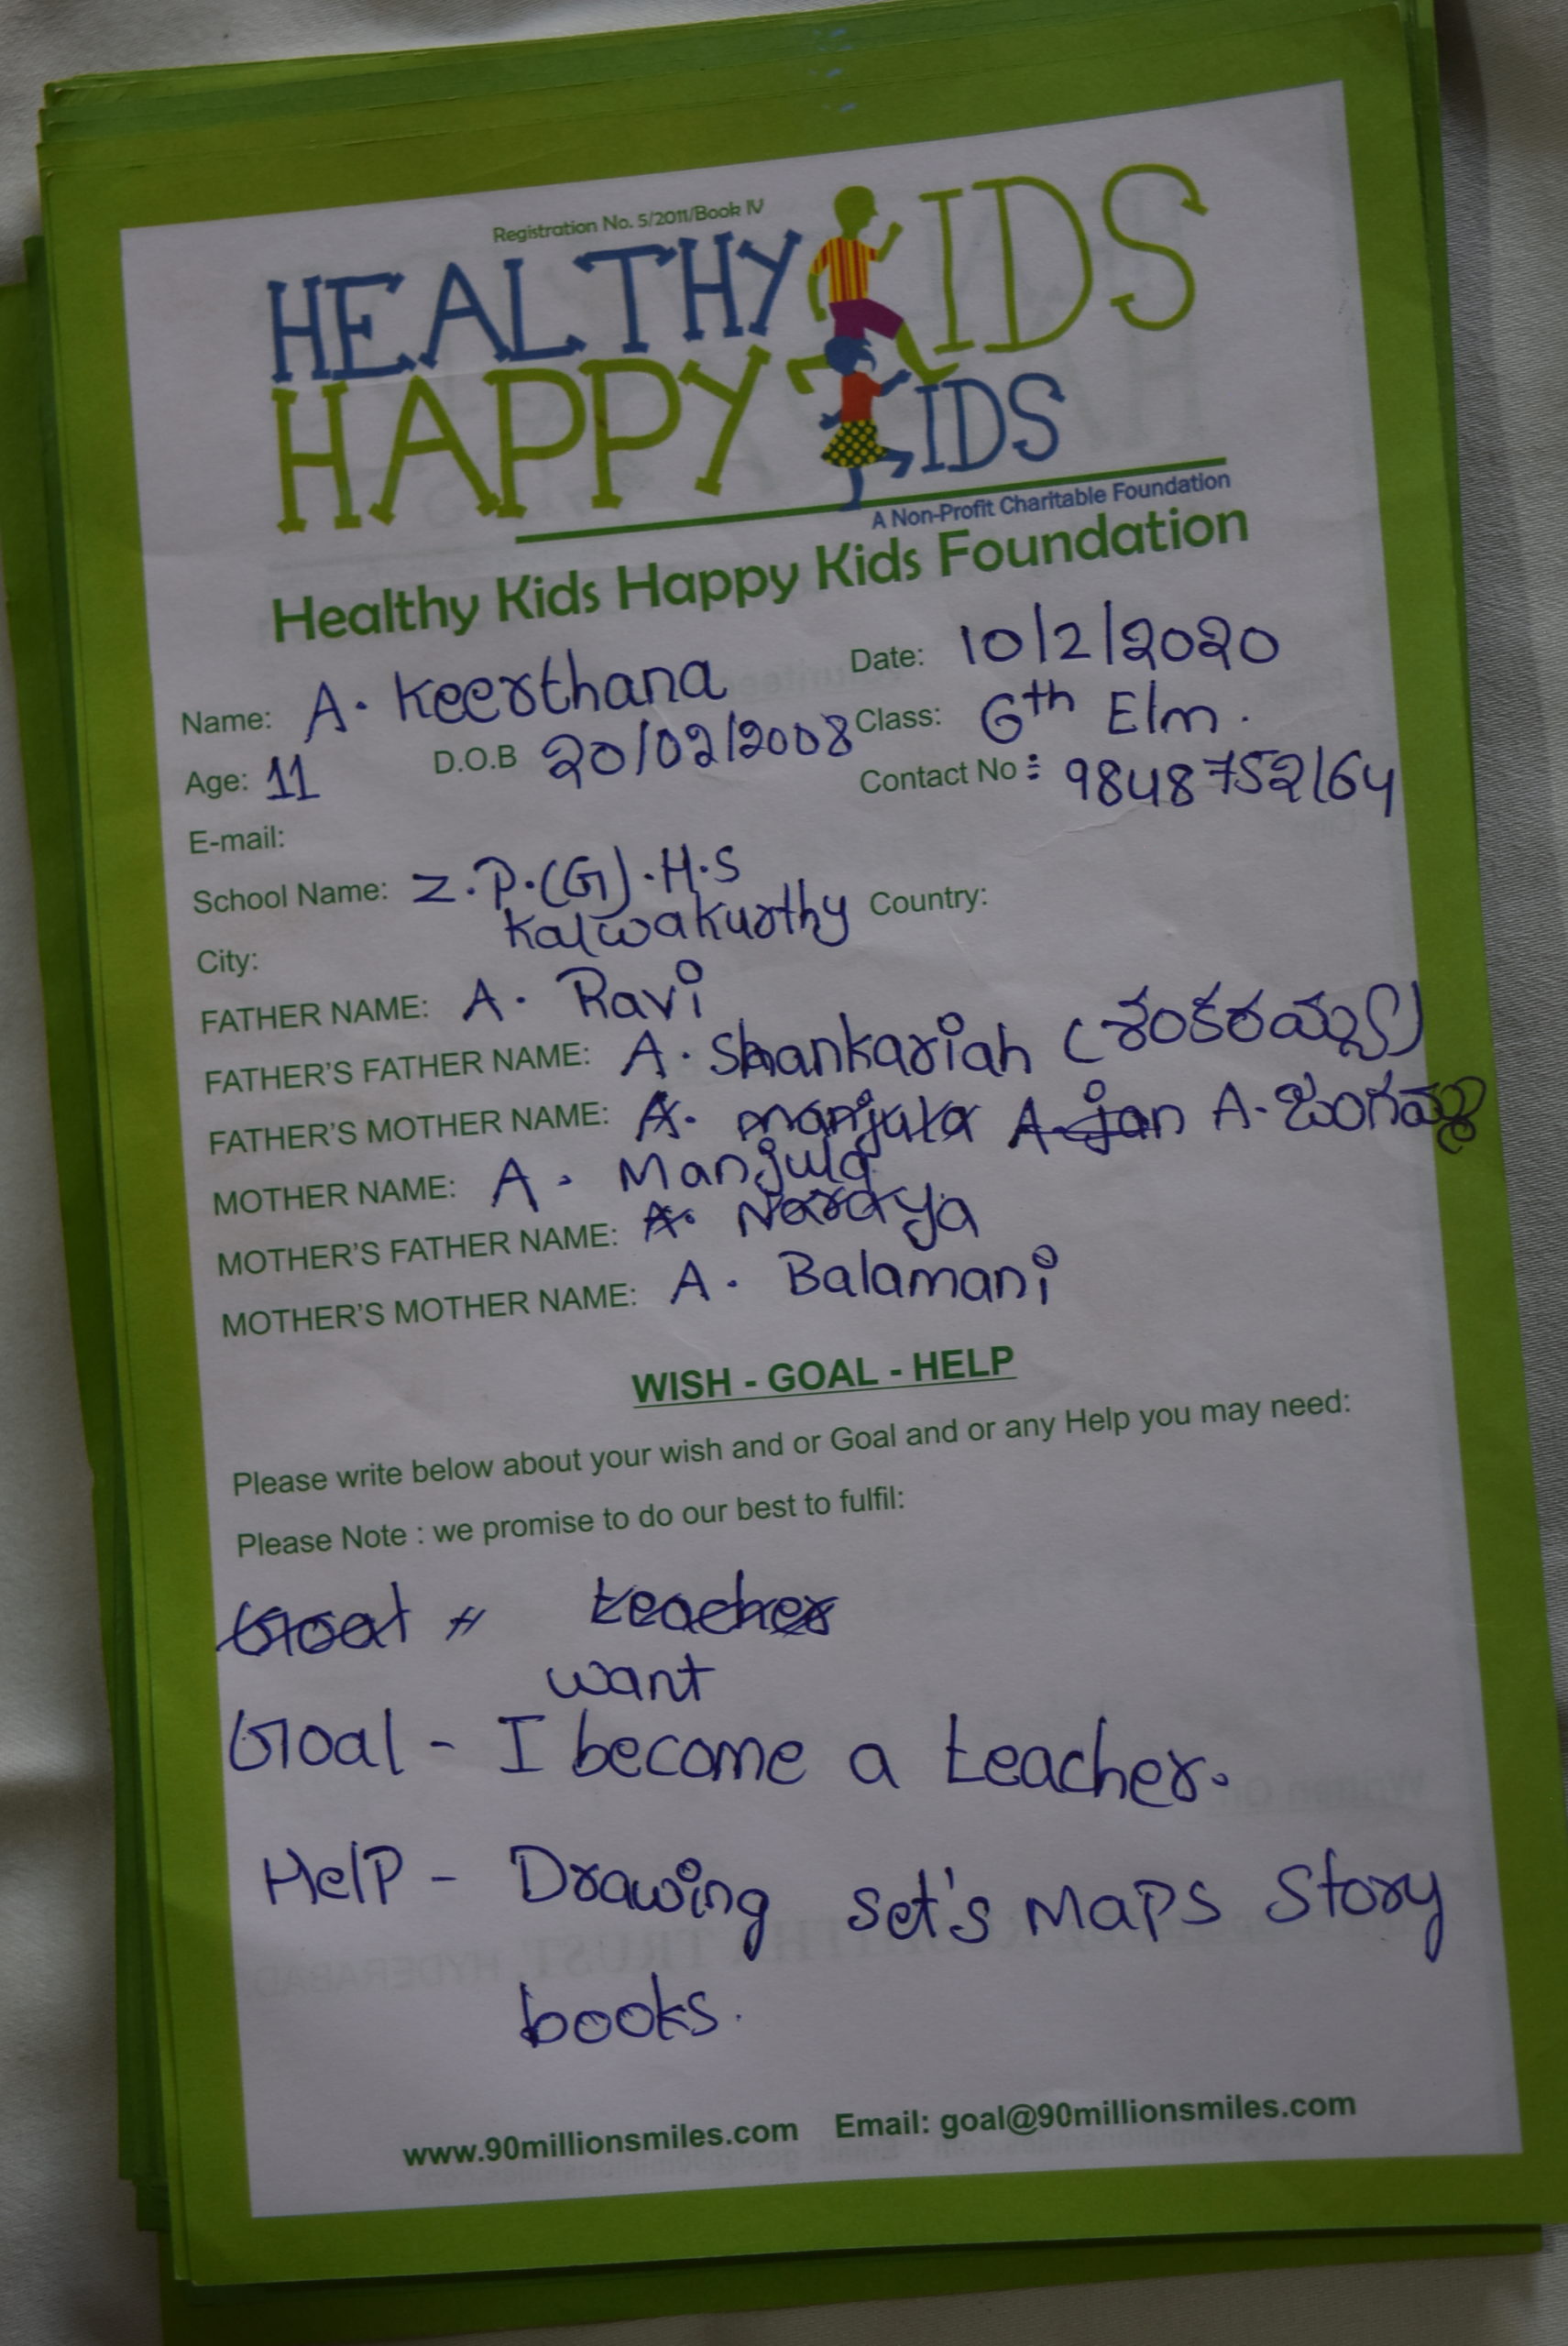 Registration No. 5/2011/Book IV
HEALTHY KIDS
HAPPY KIDS
A Non-Profit Charitable Foundation
Healthy Kids Happy Kids Foundation
Name: A. Keerthana Date: 10/2/2020
Age: 11 D.O.B 20/02/2008 Class: 6th Elm.
E-mail: Contact No : 9848752164
School Name: Z.P.(G).H.S
Kalwakurthy Country:
City:
FATHER NAME: A. Ravi
FATHER'S FATHER NAME: A. Shankariah (శంకరయ్య)
FATHER'S MOTHER NAME: A. manjula A. jan A. జంగమ్మ
MOTHER NAME: A. Manjula
MOTHER'S FATHER NAME: A. Naraya
MOTHER'S MOTHER NAME: A. Balamani
WISH - GOAL - HELP
Please write below about your wish and or Goal and or any Help you may need:
Please Note : we promise to do our best to fulfil:
Goal teacher
want
Goal - I become a teacher.
Help - Drawing set's Maps Story
books.
www.90millionsmiles.com Email: goal@90millionsmiles.com